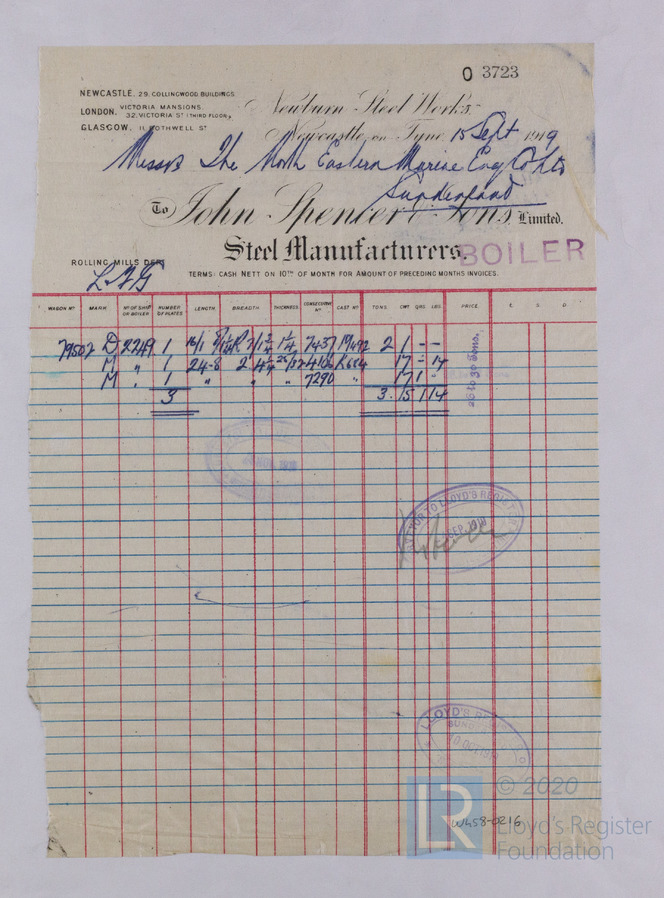 O 3723
NEWCASTLE. 29. COLLINGWOOD BUILDINGS
LONDON. VICTORIA MANSIONS. 32. VICTORIA ST (THIRD FLOOR)
GLASGOW. 11. BOTHWELL ST
Newburn Steel Works,
Newcastle on Tyne 15 Sept 1919
Messrs The North Eastern Marine Eng Co Ltd
Sunderland
To John Spencer & Sons Limited.
Steel Manufacturers.
BOILER
ROLLING MILLS DEPT
TERMS: CASH NETT ON 10TH OF MONTH FOR AMOUNT OF PRECEDING MONTHS INVOICES.
WAGON NO MARK NO OF SHIP OR BOILER NUMBER OF PLATES LENGTH BREADTH THICKNESS CONSECUTIVE NO CAST NO TONS CWT QRS LBS PRICE £ S D
79502 D 2249 1 1 1/4 7437 2 1 - -
M " 1 24-8 2' 4 1/4 17 - 14
M " 1 " " " 7290 " 17 1 -
3 3 15 1 14
26 to 30 tons.
SURVEYOR TO LLOYD'S REGISTER
SEP. 1919
LLOYD'S REGISTER
10 OCT 1919
© 2020
LR
W458-0216
Lloyd's Register
Foundation